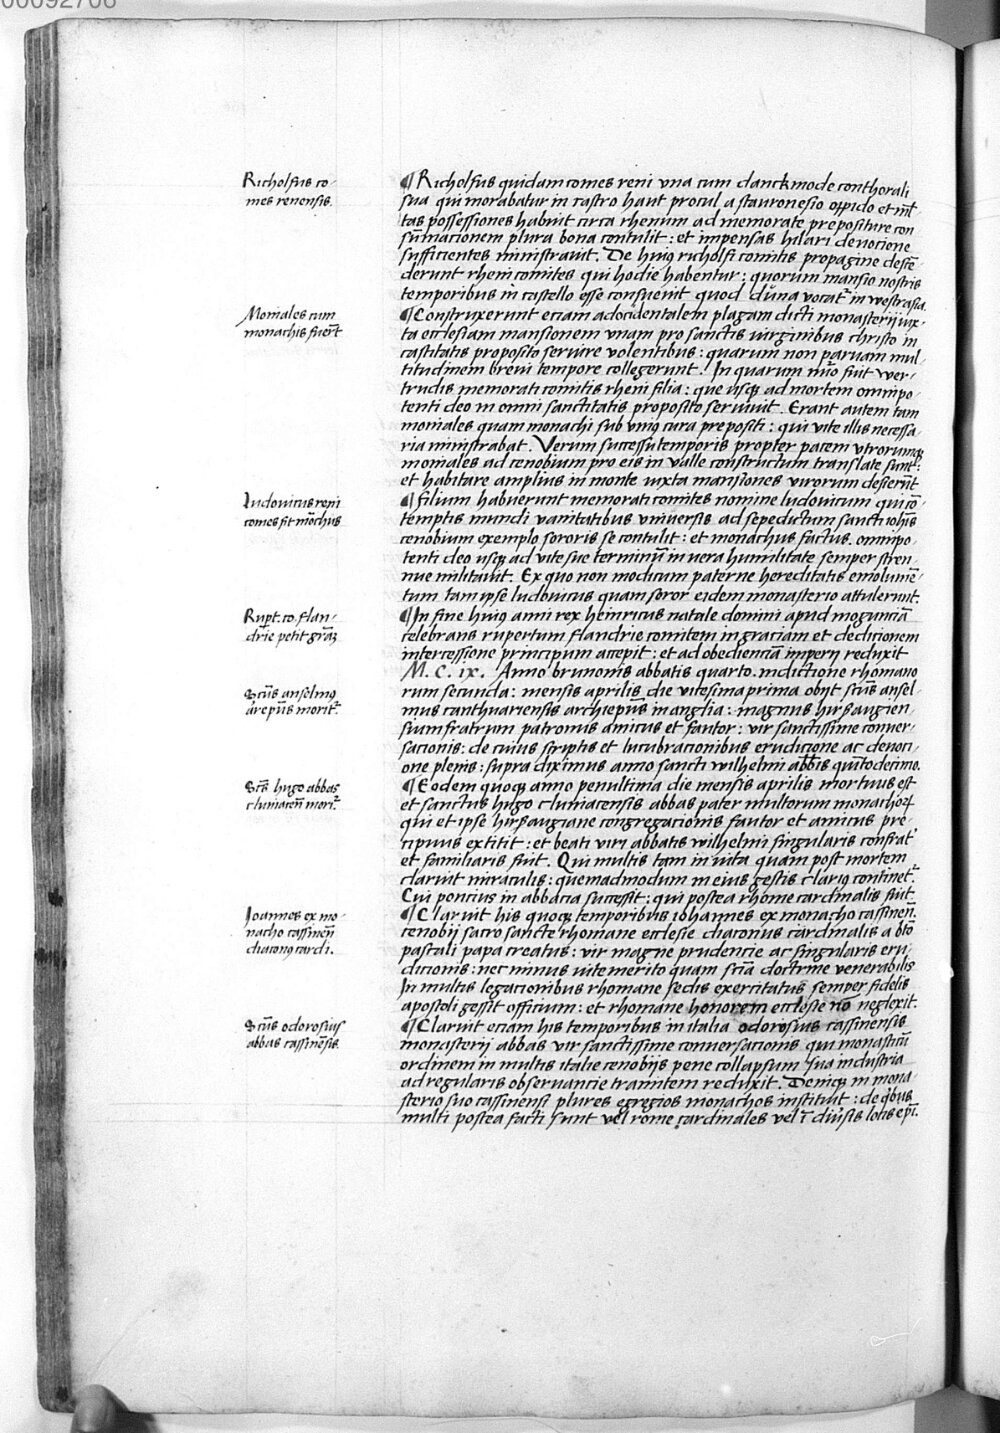 00092706
Richolfus co-
mes renensis.
¶ Richolfus quidam comes reni vna cum danckmode conthorali
sua qui morabatur in castro haut procul a stauronesio oppido et ml̅-
tas possessiones habuit circa rhenum ad memorate prepositure con
sum̅acionem plura bona contulit : et impensas hilari deuocione
sufficientes ministrauit. De huiꝰ richolfi comitis propagine desce̅-
derunt rheni comites qui hodie habentur : quorum mansio nostris
temporibus in castello esse consueuit quod du̅na vocat᷑ in westrasia.
Moniales cum
monachis fuer̅t
¶ Construxerunt eciam ad occidentalem plagam dicti monasterij iux-
ta ecclesiam mansionem vnam pro sanctis uirginibus christo in
castitatis proposito seruire volentibus : quarum non paruam mul-
titudinem breui tempore collegerunt. In quarum nu̅o fuit wer-
trudis memorati comitis rheni filia : que usqꝫ ad mortem omnipo-
tenti deo in omni sanctitatis proposito seruiuit. Erant autem tam
moniales quam monachi sub vniꝰ cura prepositi : qui vite illis necessa-
ria ministrabat. Verum successu temporis propter pacem vtrorumqꝫ
moniales ad cenobium pro eis in valle constructum translate sunt :
et habitare amplius in monte iuxta mansiones virorum desieru̅t
Ludovicus reni
comes fit mo̅chus
¶ Filium habuerunt memorati comites nomine ludouicum qui co̅-
temptis mundi vanitatibus vniuersis ad sepedictum sancti ioh̅is
cenobium exemplo sororis se contulit : et monachus factus. omnipo-
tenti deo usqꝫ ad vite sue terminu̅ in vera humilitate semper stren-
nue militauit. Ex quo non modicum paterne hereditatis emolume̅-
tum tam ipse ludouicus quam soror eidem monasterio attulerunt.
Rup̅t. co. flan-
drie petit gra̅ꝫ
¶ In fine huiꝰ anni rex heinricus natale domini apud moguncia̅
celebrans rupertum flandrie comitem in graciam et dedicionem
intercessione principum accepit : et ad obediencia̅ imperij reduxit
M. C. ix. Anno brunonis abbatis quarto. indictione rhomano
rum secunda : mensis aprilis die vicesima prima obijt sc̅us ansel
Sc̅us anselmꝰ
arep̅us morit᷑.
mus canthuariensis archiep̅us in anglia : magnus hirsaugien-
sium fratrum patronus amicus et fautor : vir sanctissime conuer-
sacionis : de cuius scriptis et lucubracionibus erudicione ac deuoci-
one plenis : supra diximus anno sancti wilhelmi abb̅is qui̅todecimo.
Sc̅s hugo abbas
cluniacen̅ mori᷑.
¶ Eodem quoqꝫ anno penultima die mensis aprilis mortuus est
et sanctus hugo cluniacensis abbas pater multorum monachoꝝ
qui et ipse hirsaugiane congregacionis fautor et amicus pre-
cipuus extitit : et beati viri abbatis wilhelmi singularis confrat᷑
et familiaris fuit. Qui multis tam in uita quam post mortem
claruit miraculis : quemadmodum in eius gestis clariꝰ continet᷑.
Cui poncius in abbacia successit : qui postea rhome cardinalis fuit.
Joannes ex mo-
nacho cassinen̅
diaconꝰ cardi.
¶ Claruit his quoqꝫ temporibus iohannes ex monacho cassinen̅.
cenobij sacro sancte rhomane ecclesie diaconus cardinalis a bt̅o
pascali papa creatus : vir magne prudencie ac singularis eru-
dicionis : nec minus uite merito quam scia̅ doctrine venerabilis
In multis legacionibus rhomane sedis exercitatus semper fidelis
apostoli gessit officium : et rhomane honorem ecclesie no̅ neglexit.
Sc̅us odorosius
abbas cassine̅sis
¶ Claruit eciam his temporibus in italia odorosius cassinensis
monasterij abbas vir sanctissime conuersacionis qui monasticu̅
ordinem in multis italie cenobijs pene collapsum sua industria
ad regularis obseruancie tramitem reduxit. Deniqꝫ in mona-
sterio suo cassinensi plures egregios monachos instituit : de q̅bus
multi postea facti sunt vel rome cardinales vel i̅ diu̅sis locis ep̅i.